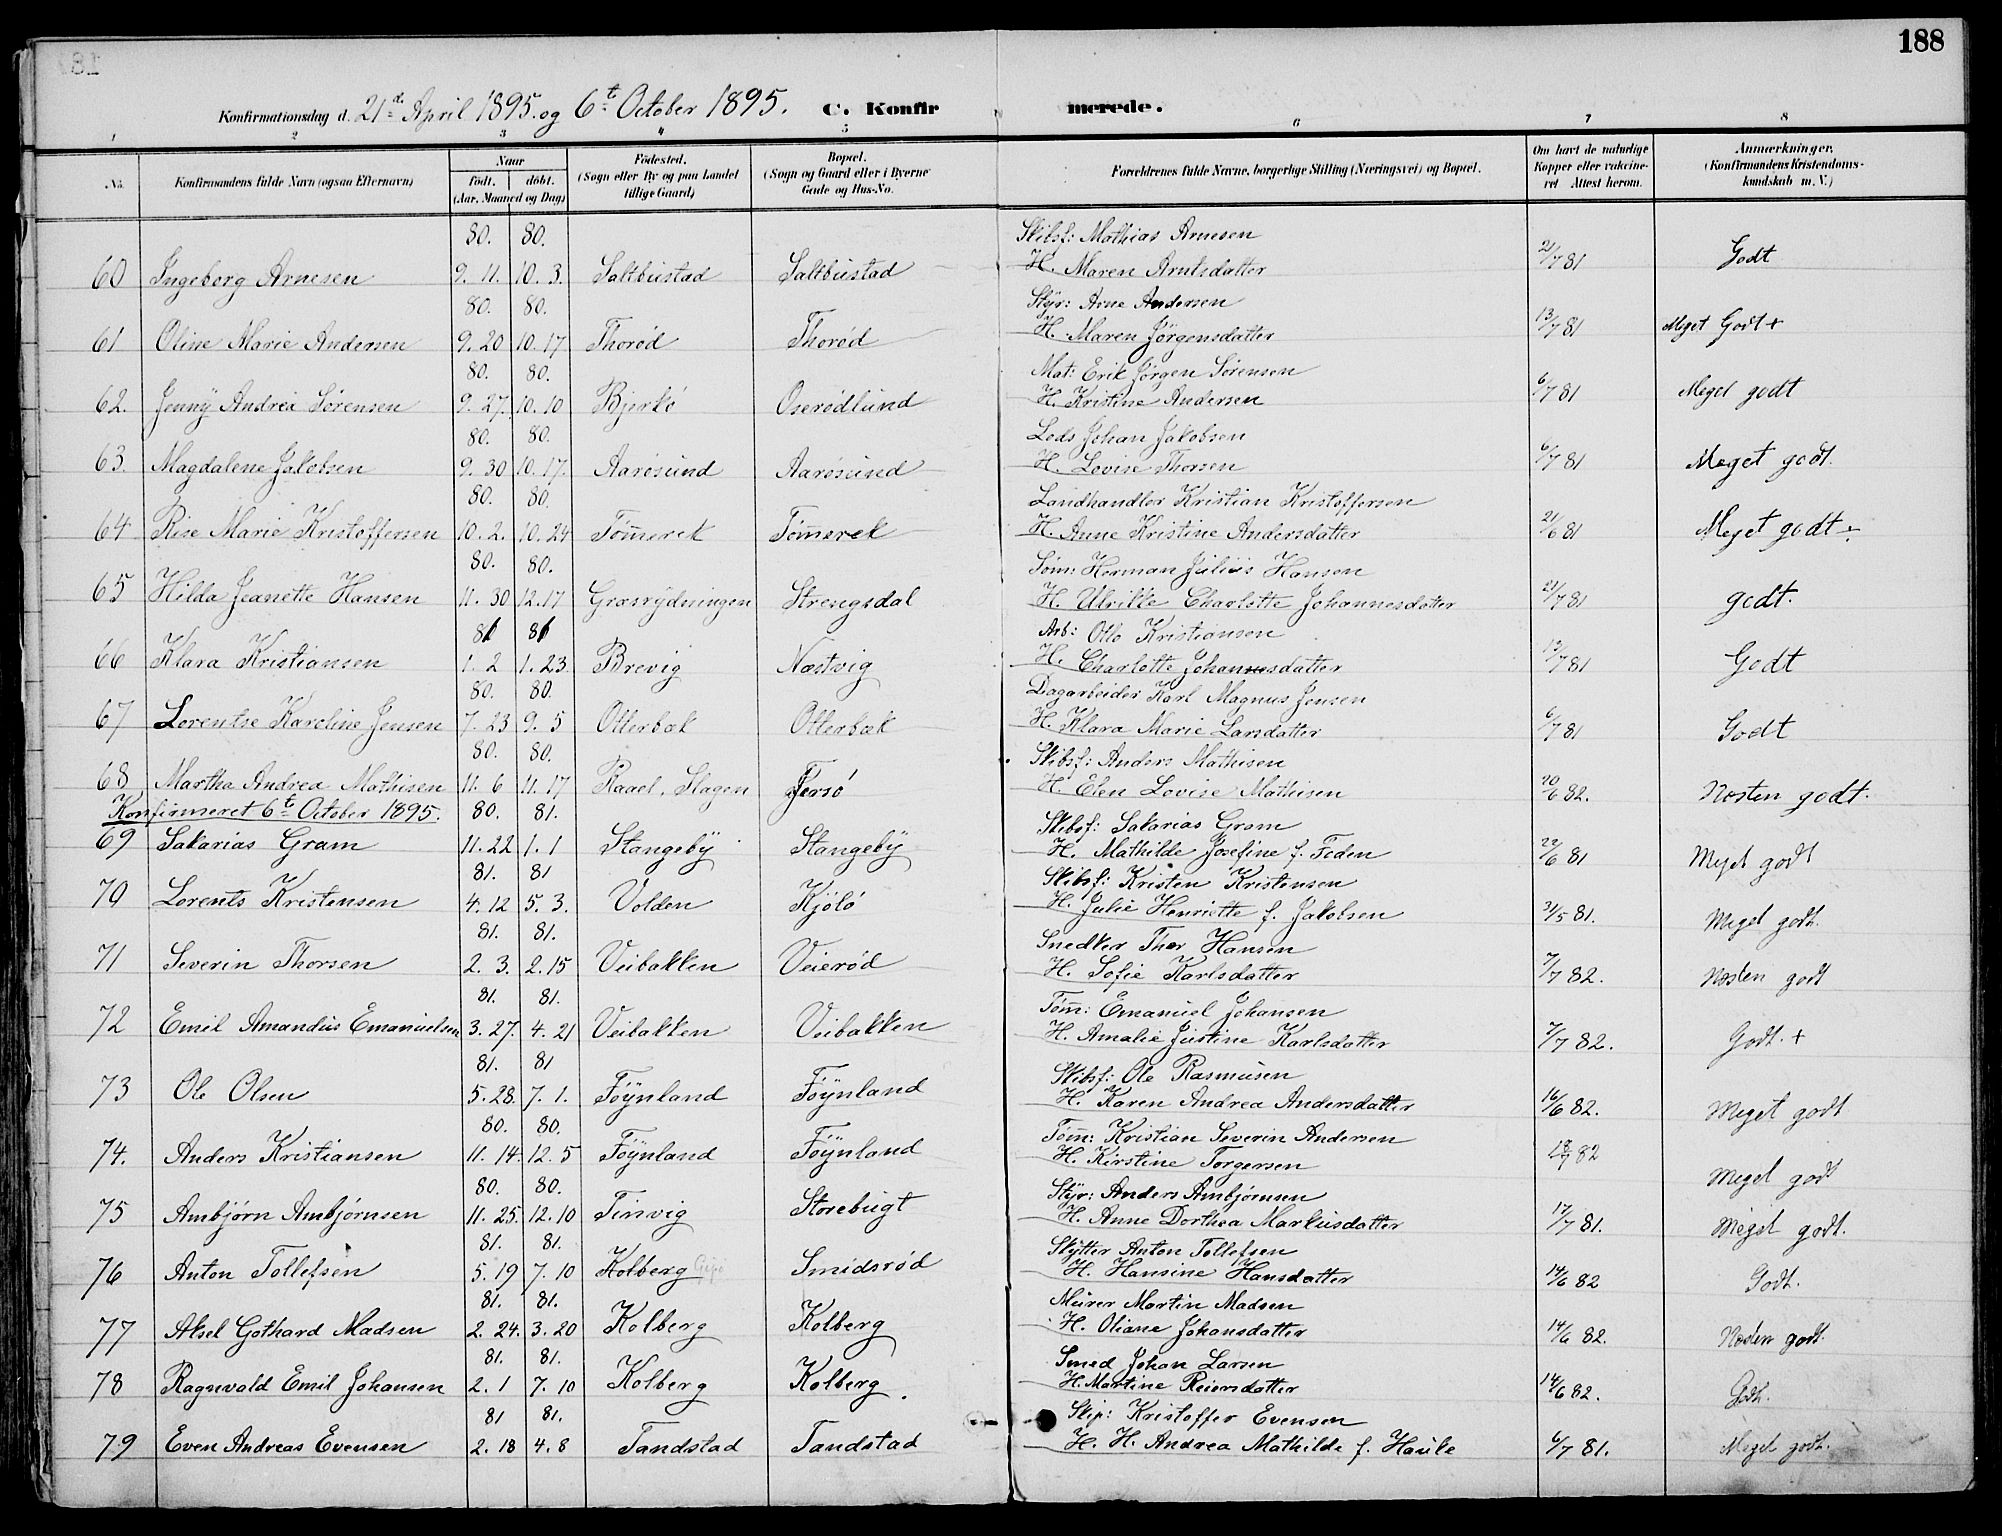 188
Konfirmationsdag d. 21de April 1895. og 6te October 1895. C. Konfirmerede.
1 2 3 4 5 6 7 8
No. Konfirmandens fulde Navn (ogsaa Efternavn) Naar født. døbt. (Aar, Maaned og Dag) Fødested. (Sogn eller By og paa Landet tillige Gaard) Bopæl. (Sogn og Gaard eller i Byerne Gade og Hus-No. Forældrenes fulde Navne, borgerlige Stilling (Næringsvei) og Bopæl. Om havt de naturlige Kopper eller vakcineret Attest herom. Anmærkninger. (Konfirmandens Kristendomskundskab m. V.)
80. 80. Skibsf: Mathias Arnesen
60 Ingeborg Arnesen 9. 11. 10. 3. Saltbustad Saltbustad H. Maren Arntsdatter 21/7 81 Godt
80. 80. Styr: Arne Andersen
61 Oline Marie Andersen 9. 20 10. 17 Thorød Thorød H. Maren Jørgensdatter 13/7 81 Meget Godt +
80. 80. Mat: Erik Jørgen Sørensen
62. Jenny Andrea Sørensen 9. 27. 10. 10 Bjerkø Oserødlund H. Kristine Andersen 6/7 81 Meget godt
80. 80. Lods Johan Jakobsen
63. Magdalene Jakobsen 9. 30 10. 17. Aarøsund Aarøsund H. Lovise Thorsen 6/7 81 Meget godt.
80. 80. Landhandler Kristian Kristoffersen
64 Rise Marie Kristoffersen 10. 2. 10. 24 Tømeret Tømeret H. Anne Kristine Andersdatter 21/6 81 Meget godt ÷
80. 80. Tøm: Herman Julius Hansen
65 Hilda Jeanette Hansen 11. 30 12. 17 Græsrydningen Strengsdal H. Ulrikke Charlotte Johannesdatter 21/7 81 godt.
81 81 Arb: Otto Kristiansen
66 Klara Kristiansen 1. 2 1. 23 Brevig Næstvig H. Charlotte Johannesdatter 13/7 81 Godt
80. 80. Dagarbeider Karl Magnus Jensen
67 Lorentse Karoline Jensen 7. 23 9. 5 Otterbæk Otterbæk H. Klara Marie Larsdatter 6/7 81 Godt
80. 80. Skibsf: Anders Mathisen
68 Martha Andrea Mathisen 11. 6 11. 17 Raael, Slagen Tersø H. Elen Lovise Mathisen 20/6 82. Næsten godt.
Konfirmeret 6te October 1895. 80. 81. Skibsf: Sakarias Gram
69 Sakarias Gram 11. 22 1. 1 Stangeby Stangeby H. Mathilde Josefine f. Foden 22/6 81 Meget godt
81. 81 Skibsf: Kristen Kristensen
70 Lorents Kristensen 4. 12 5. 3. Volden Kjølø H. Julie Henriette f. Jakobsen 31/5 81. Meget godt.
81. 81. Snedker Thor Hansen
71 Severin Thorsen 2. 3. 2. 15 Veibakken Veierød H. Sofie Karlsdatter 7/7 82. Næsten godt
81. 81. Tøm: Emanuel Johansen
72 Emil Amandus Emanuelsen 3. 27. 4. 21 Veibakken Veibakken H. Amalie Justine Karlsdatter 7/7 82. Godt. +
81. 81 Skibsf: Ole Rasmusen
73 Ole Olsen 5. 28. 7. 1. Føynland Føynland H. Karen Andrea Andersdatter 16/6 82. Meget godt
80. 80. Tøm: Kristian Severin Andersen
74. Anders Kristiansen 11. 14. 12. 5 Føynland Føynland H. Kirstine Torgersen 82 Meget godt
80. 80. Styr: Anders Ambjørnsen
75 Ambjørn Ambjørnsen 11. 25. 12. 10 Tinvig Storebugt H. Anne Dorthea Markusdatter 17/7 81. Meget godt.
81. 81. Skytter Anton Tollefsen
76 Anton Tollefsen 5. 19 7. 10 Kolberg Smidsrød H. Hansine Hansdatter 14/6 82 Godt.
81. 81. Murer Martin Madsen
77 Aksel Gothard Madsen 2. 24. 3. 20 Kolberg Kolberg H. Oliane Johansdatter 14/6 82. Næsten godt.
81. 81. Smed Johan Larsen
78 Ragnvald Emil Johansen 2. 1 7. 10 Kolberg Kolberg. H. Martine Reiersdatter 14/6 82. Godt.
81 81. Skip: Kristoffer Evensen
79 Even Andreas Evensen 2. 18 4. 8 Tandstad Tandstad H. H. Andrea Mathilde f. Hauke 6/7 81. Meget godt.